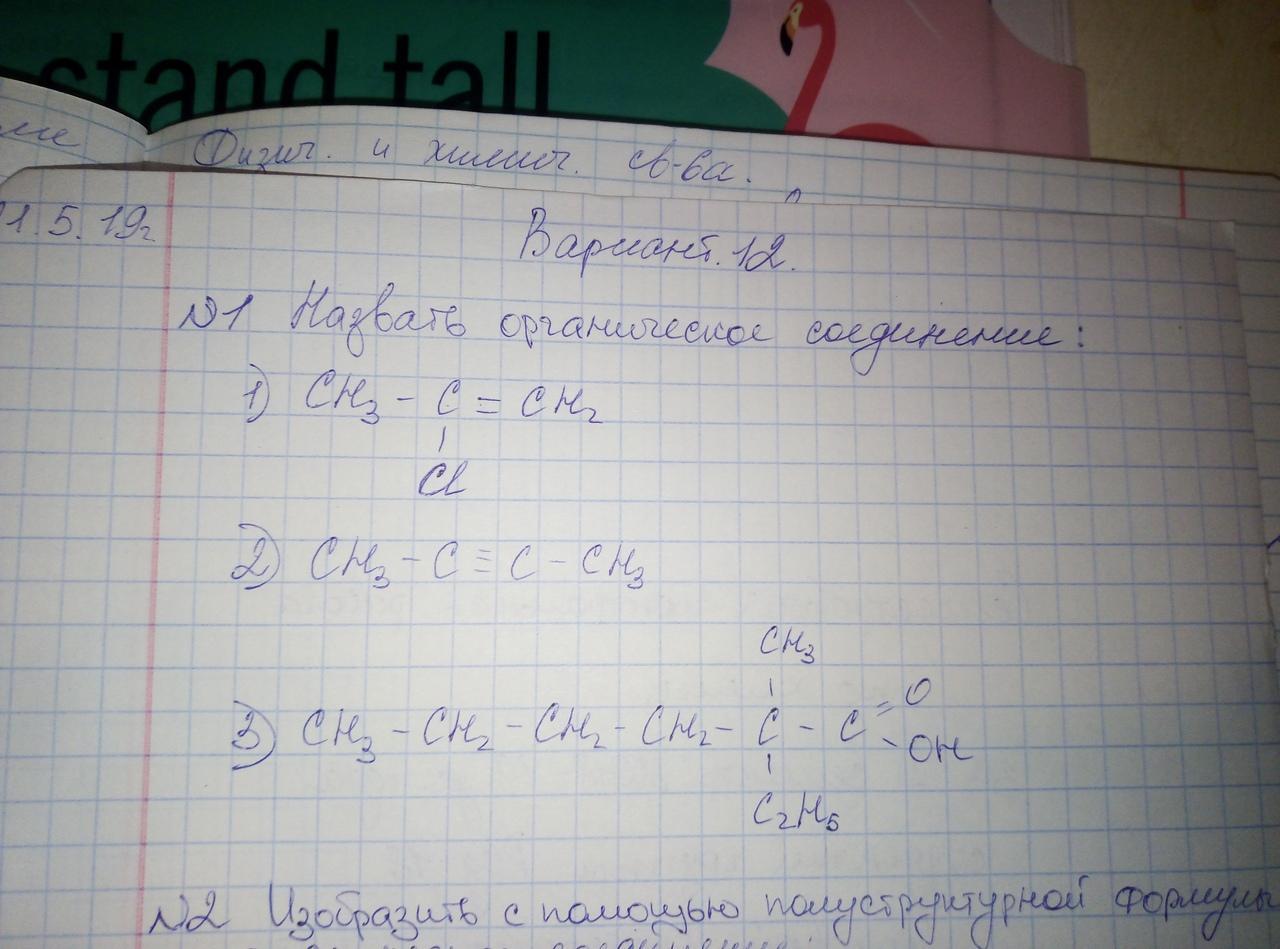 stand tall
Физич. и химич. св-ва.
1.5.19г.
Вариант.12.
№1 Назвать органическое соединение:
1) CH₃ - C = CH₂
Cl
2) CH₃ - C ≡ C - CH₃
CH₃
3) CH₃ - CH₂ - CH₂ - CH₂ - C - C = O
- OH
C₂H₅
№2 Изобразить с помощью полуструктурной формулы